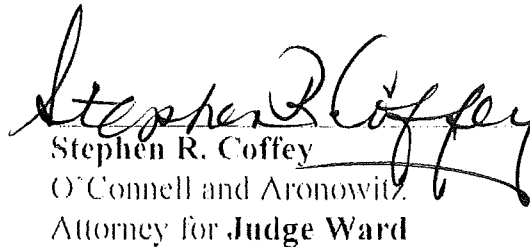 Stephen R. Coffey
Stephen R. Coffey
O'Connell and Aronowitz
Attorney for Judge Ward